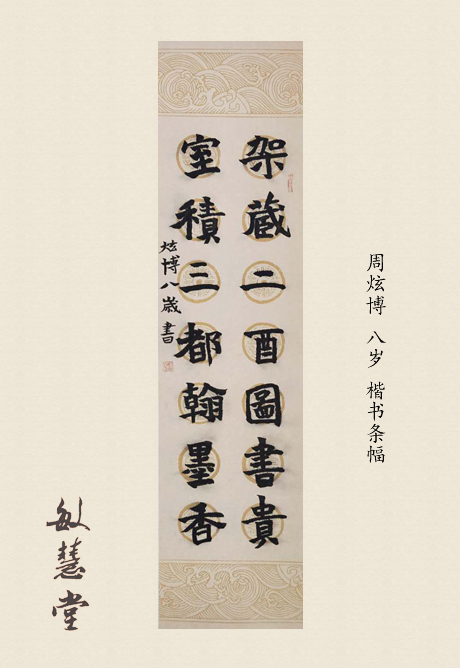 架蔵二酉圖書貴
室積三都翰墨香
炫博八歲書
周炫博 八岁 楷书条幅
敏慧堂